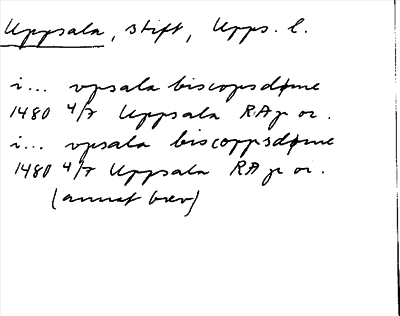 Uppsala, stift, Upps. l.
i... vpsala biscopsdøme
1480 4/7 Uppsala RAp or.
i... vpsala biscoppsdøme
1480 4/7 Uppsala RAp or.
(annat brev)